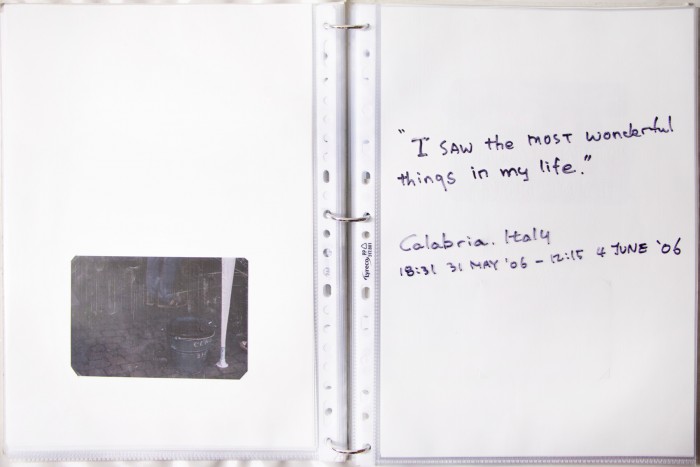 "I SAW the MOST wonderful
things in my life."
Calabria. Italy
18:31 31 MAY '06 – 12:15 4 JUNE '06